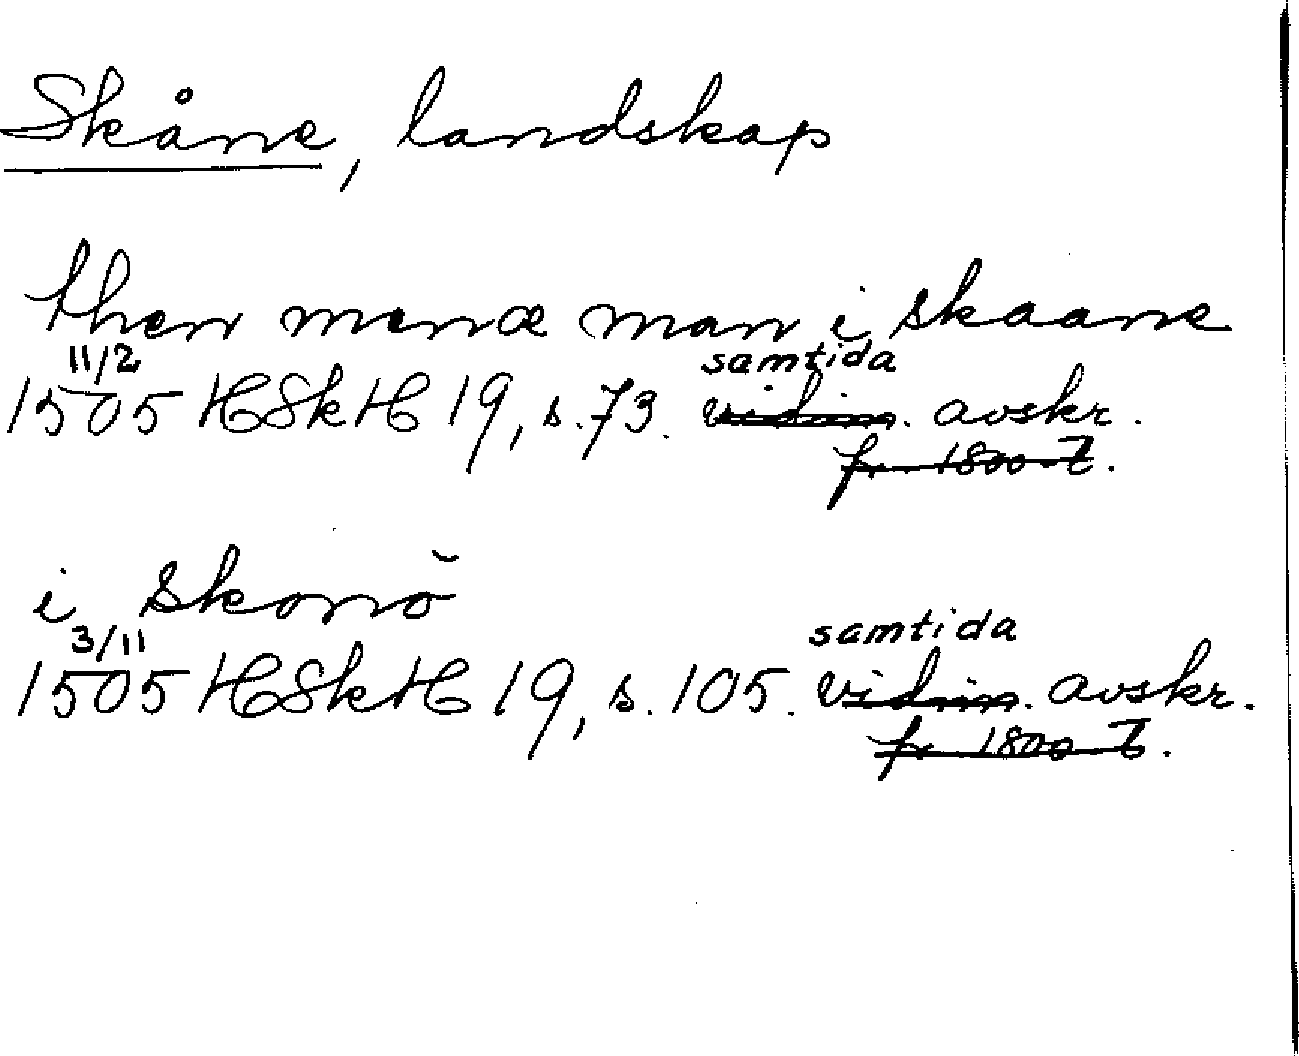 Skåne, landskap
then menæ man i skaane
11/2 samtida
1505 HSkH 19, s. 73. vidim. avskr.
fr. 1800-t.
i skonö
3/11 samtida
1505 HSkH 19, s. 105. vidim. avskr.
fr 1800-t.